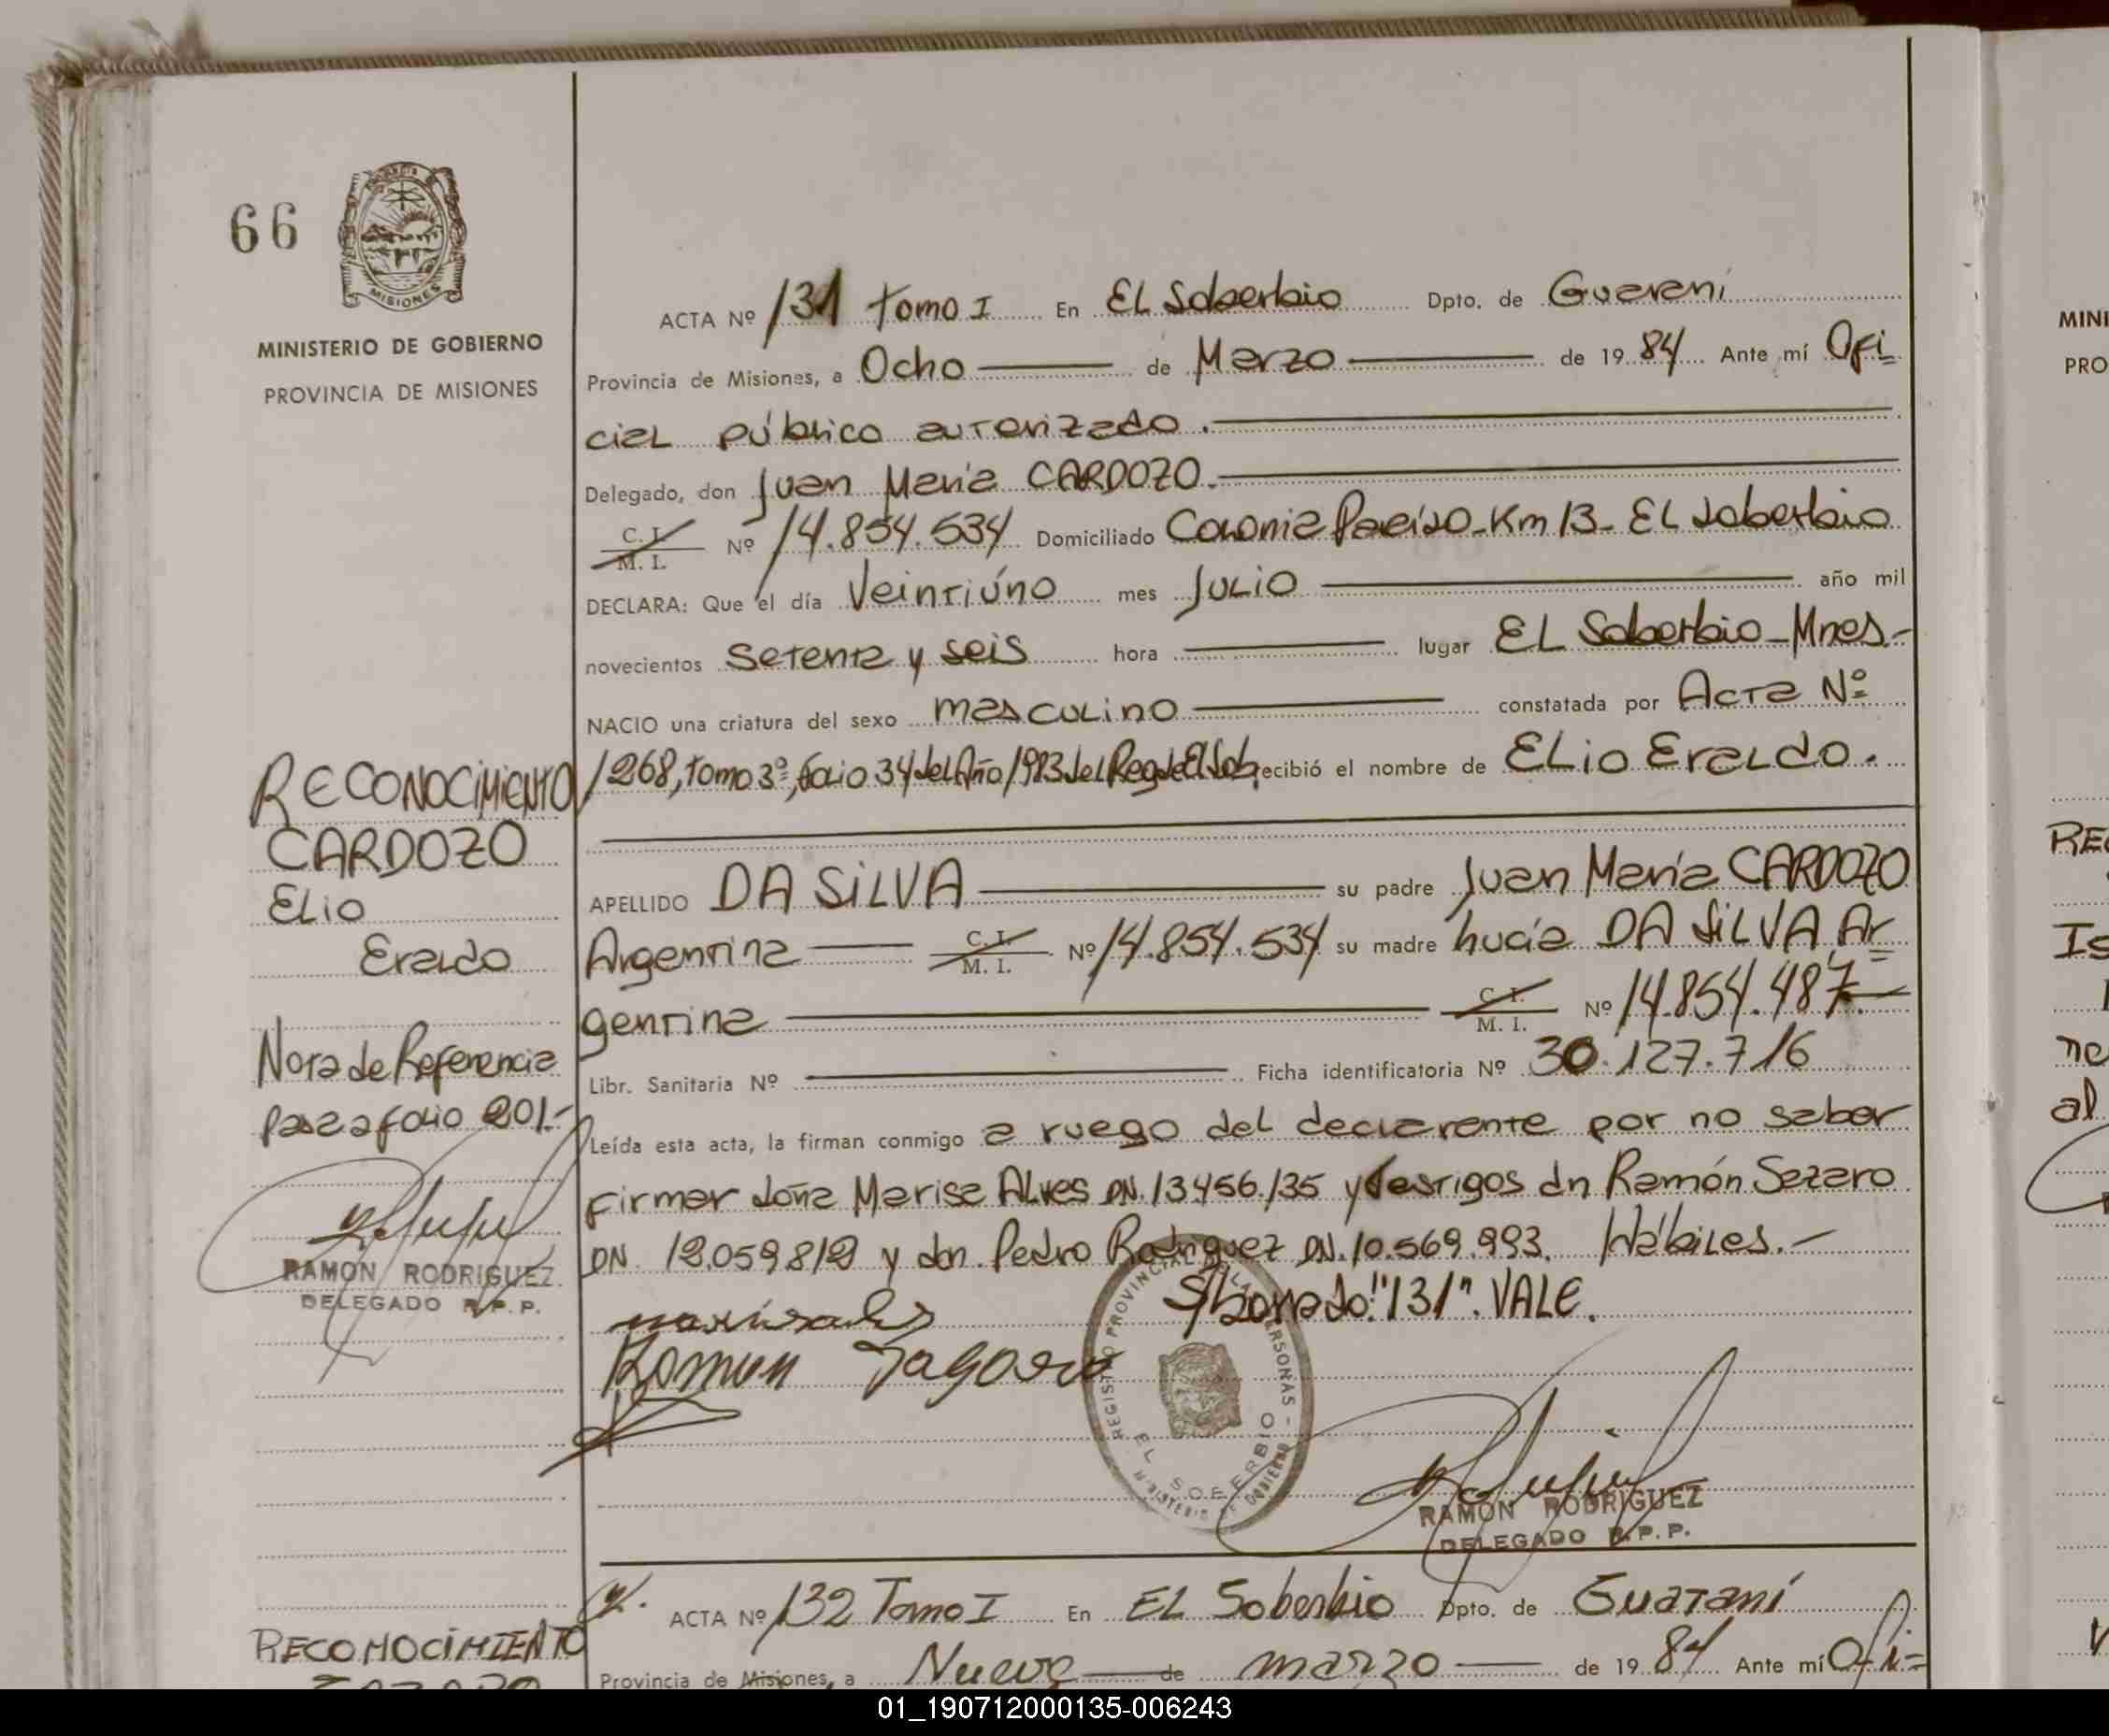 66
MISIONES
MINISTERIO DE GOBIERNO
PROVINCIA DE MISIONES
ACTA Nº 131 Tomo I En EL Soberbio Dpto. de Guarani
Provincia de Misiones, a Ocho de Marzo de 1984 Ante mí Ofi
cial público autorizado.
Delegado, don Juan María CARDOZO.
C. I. M. I. Nº 14.854.534 Domiciliado Colonia Paraíso-Km 13-EL Soberbio
DECLARA: Que el día Veintiúno mes JULIO año mil
novecientos Setenta y seis hora lugar EL Soberbio-Mnes.-
NACIO una criatura del sexo masculino constatada por Acta Nº
1268, tomo 3º, folio 34 del Año 1983 del Reg de El Sob, recibió el nombre de ELio EraLdo.
APELLIDO DA SiLVA su padre Juan María CARDOZO
Argentina C. I. M. I. Nº 14.854.534 su madre Lucía DA SiLVA Ar
gentina C. I. M. I. Nº 14.854.487.
Libr. Sanitaria Nº Ficha identificatoria Nº 30.127.716
Leída esta acta, la firman conmigo a ruego del declarante por no saber
firmar doña Marisa ALves DN. 13.456.135 y testigos dn Ramón Sazaro
DN. 12.059.812 y don Pedro Rodriguez DN. 10.569.993. Hábiles.-
S/borrado: "131". VALE.
Ramon
REGISTRO PROVINCIAL DE LAS PERSONAS - EL SOBERBIO
MINISTERIO DE GOBIERNO
RAMON RODRIGUEZ
DELEGADO R.P.P.
RECONOCIMIENTO
CARDOZO
ELio
EraLdo
Nota de Referencia
pasa a folio 201.-
RAMON RODRIGUEZ
DELEGADO R.P.P.
ACTA Nº 132 Tomo I En EL Soberbio Dpto. de Guaraní
Provincia de Misiones, a Nueve de marzo de 1984 Ante mí Ofi-
RECONOCIMIENTO
MINI
PRO
RE
Is
ne
al
01_190712000135-006243